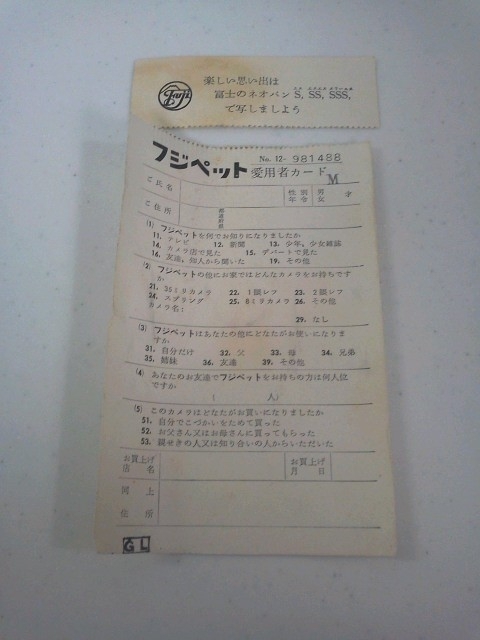 Fuji
楽しい思い出は
富士のネオパン S, SS, SSS,
で写しましよう
フジペット 愛用者カード
No. 12- 981488
M
ご氏名
性別 男 女
年令 才
ご住所
都道府県
(1) フジペットを何でお知りになりましたか
11. テレビ 12. 新聞 13. 少年，少女雑誌
14. カメラ店で見た 15. デパートで見た
16. 友達，知人から聞いた 19. その他
(2) フジペットの他にお家ではどんなカメラをお持ちです
か
21. 35ミリカメラ 22. 1眼レフ 23. 2眼レフ
24. スプリング 25. 8ミリカメラ 26. その他
カメラ名: 29. なし
(3) フジペットはあなたの他にどなたがお使いになりま
すか
31. 自分だけ 32. 父 33. 母 34. 兄弟
35. 姉妹 36. 友達 39. その他
(4) あなたのお友達でフジペットをお持ちの方は何人位
ですか
( 人)
(5) このカメラはどなたがお買いになりましたか
51. 自分でこづかいをためて買った
52. お父さん又はお母さんに買ってもらった
53. 親せきの人又は知り合いの人からいただいた
お買上げ店名
お買上げ月日
同上住所
G L